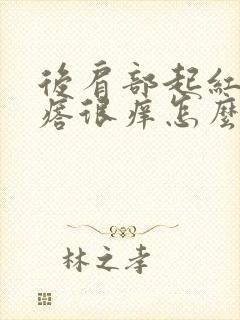 後肩部起紅
疙很痒怎麼
林之孝